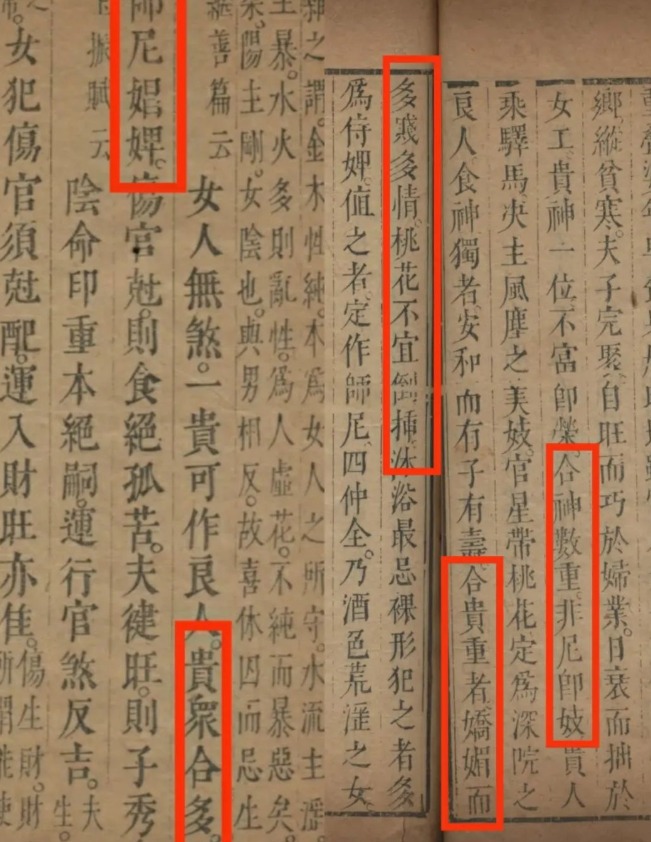 鄉縱貧寒。夫子完聚。自旺而巧於婦業。日衰而拙於
女工貴神一位不富即榮。合神數重。非尼即妓貴人
乘驛馬决主風塵之美妓。官星帶桃花定爲深院之
良人食神獨者安和而有子有壽。合貴重者嬌媚而
多賤多情。桃花不宜倒插沐浴最忌裸形犯之者多
爲侍婢。值之者。定作師尼。四仲全。乃酒色荒淫之女
之謂。金木性純。本爲女人之所守。水流主淫
主暴。水火多則亂性。爲人虛花。不純而暴惡矣。
柔。陽主剛。女陰也。與男相反。故喜休囚而忌生
繼善篇云 女人無煞。一貴可作良人。貴衆合多。
師尼娼婢。傷官尅。則食絕孤苦。夫健旺。則子秀
振賦云 陰命印重本絕嗣。運行官煞反吉。夫
生。
女犯傷官須尅配。運入財旺亦佳。傷生財。財